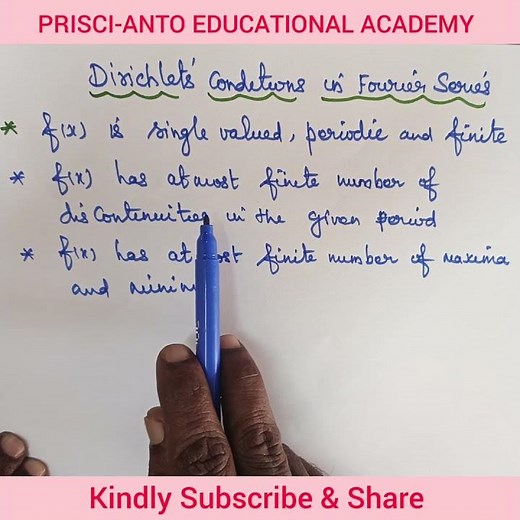 PRISCI-ANTO EDUCATIONAL ACADEMY
Dirichlet's Conditions in Fourier Series
* f(x) is single valued, periodic and finite
* f(x) has atmost finite number of
discontinuities in the given period
* f(x) has at finite number of maxima
and
Kindly Subscribe & Share